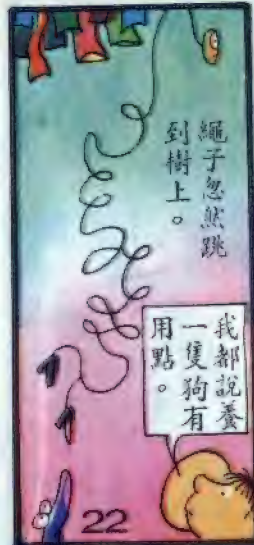 繩子忽然跳
到樹上。
我都說養
一隻狗有
用點。
22